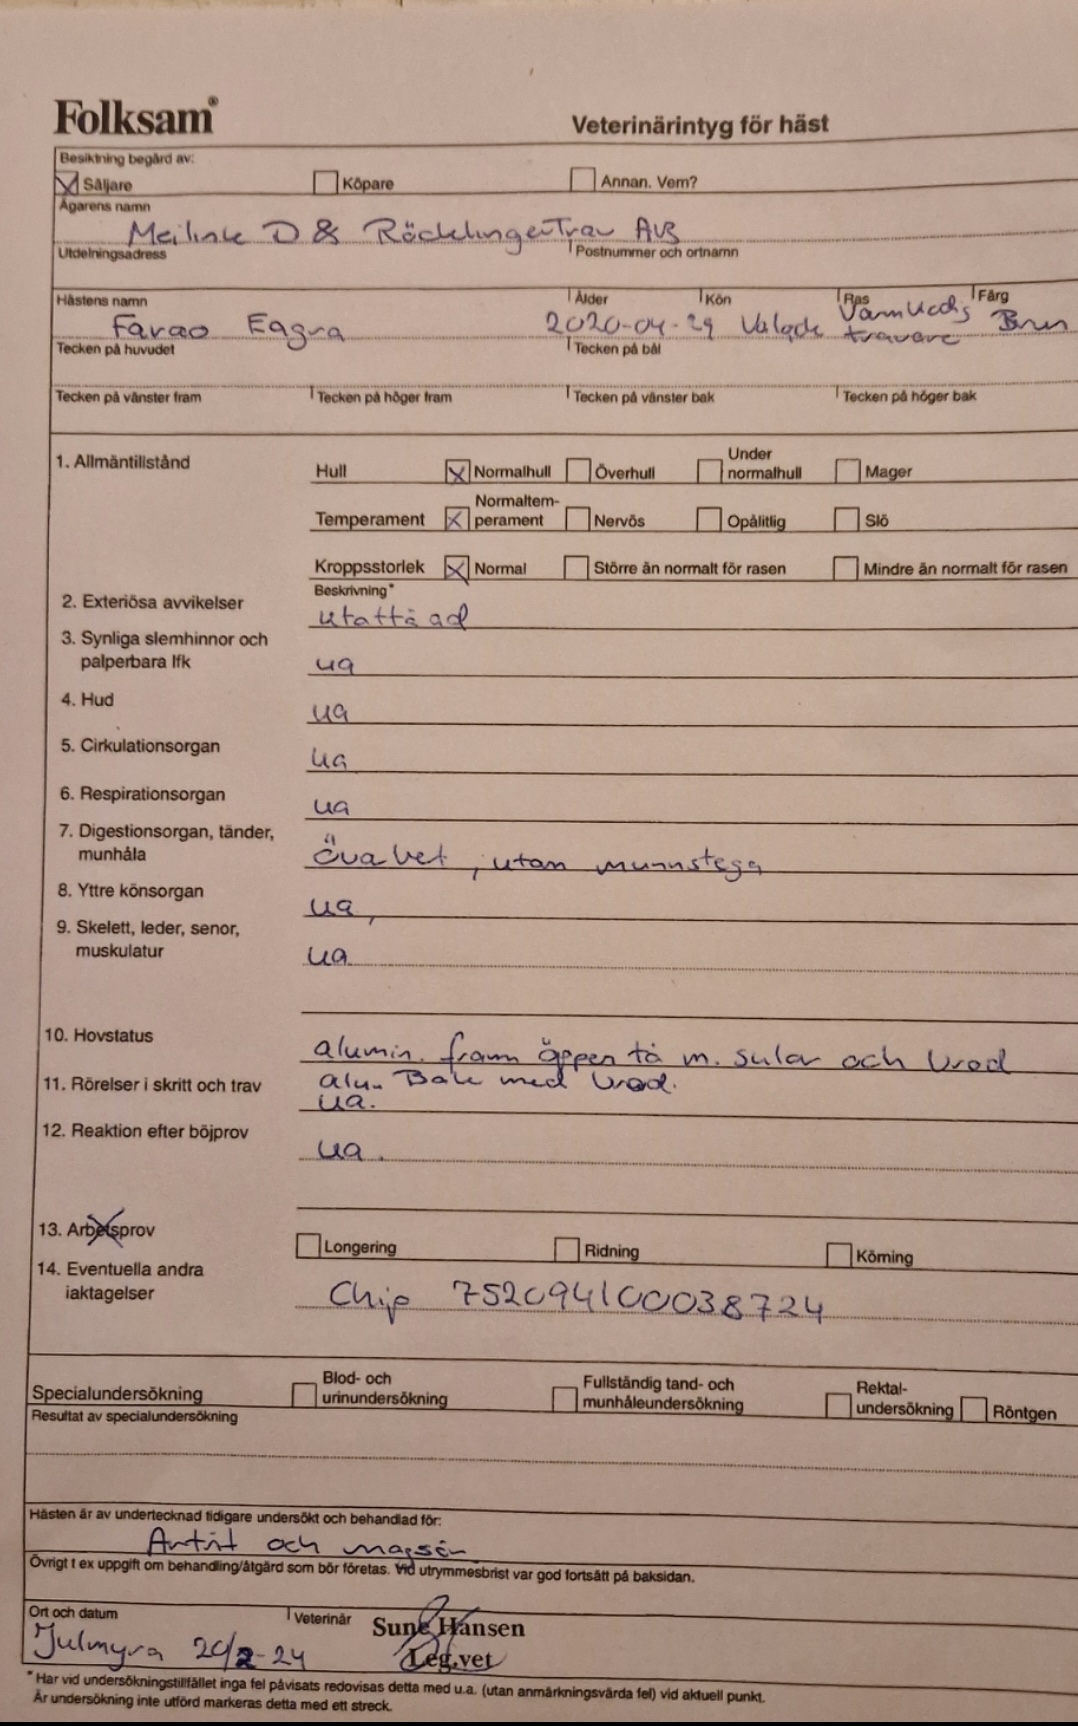 Folksam®
Veterinärintyg för häst
Besiktning begärd av:
Säljare Köpare Annan. Vem?
Ägarens namn
Meilink D & Röcklinger Trav AB
Utdelningsadress Postnummer och ortnamn
Hästens namn Ålder Kön Ras Färg
Farao Eagra 2020-04-29 Valack Varmblodig travare Brun
Tecken på huvudet Tecken på bål
Tecken på vänster fram Tecken på höger fram Tecken på vänster bak Tecken på höger bak
1. Allmäntillstånd
Hull Normalhull Överhull Under normalhull Mager
Temperament Normaltem-perament Nervös Opålitlig Slö
Kroppsstorlek Normal Större än normalt för rasen Mindre än normalt för rasen
Beskrivning*
2. Exteriösa avvikelser utåttåad
3. Synliga slemhinnor och
palperbara lfk ua
4. Hud ua
5. Cirkulationsorgan ua
6. Respirationsorgan ua
7. Digestionsorgan, tänder,
munhåla utan munnstega
8. Yttre könsorgan ua,
9. Skelett, leder, senor,
muskulatur ua
10. Hovstatus alumin. fram öppen tå m. sular och brod
alu. Bak med brod.
11. Rörelser i skritt och trav ua.
12. Reaktion efter böjprov ua.
13. Arbetsprov Longering Ridning Körning
14. Eventuella andra
iaktagelser Chip 752094100038724
Specialundersökning Blod- och urinundersökning Fullständig tand- och munhåleundersökning Rektal-undersökning Röntgen
Resultat av specialundersökning
Hästen är av undertecknad tidigare undersökt och behandlad för:
Artrit och magsår
Övrigt t ex uppgift om behandling/åtgärd som bör företas. Vid utrymmesbrist var god fortsätt på baksidan.
Ort och datum Veterinär Sune Hansen
Julmyra 20/2-24 Leg.vet
* Har vid undersökningstillfället inga fel påvisats redovisas detta med u.a. (utan anmärkningsvärda fel) vid aktuell punkt.
Är undersökning inte utförd markeras detta med ett streck.